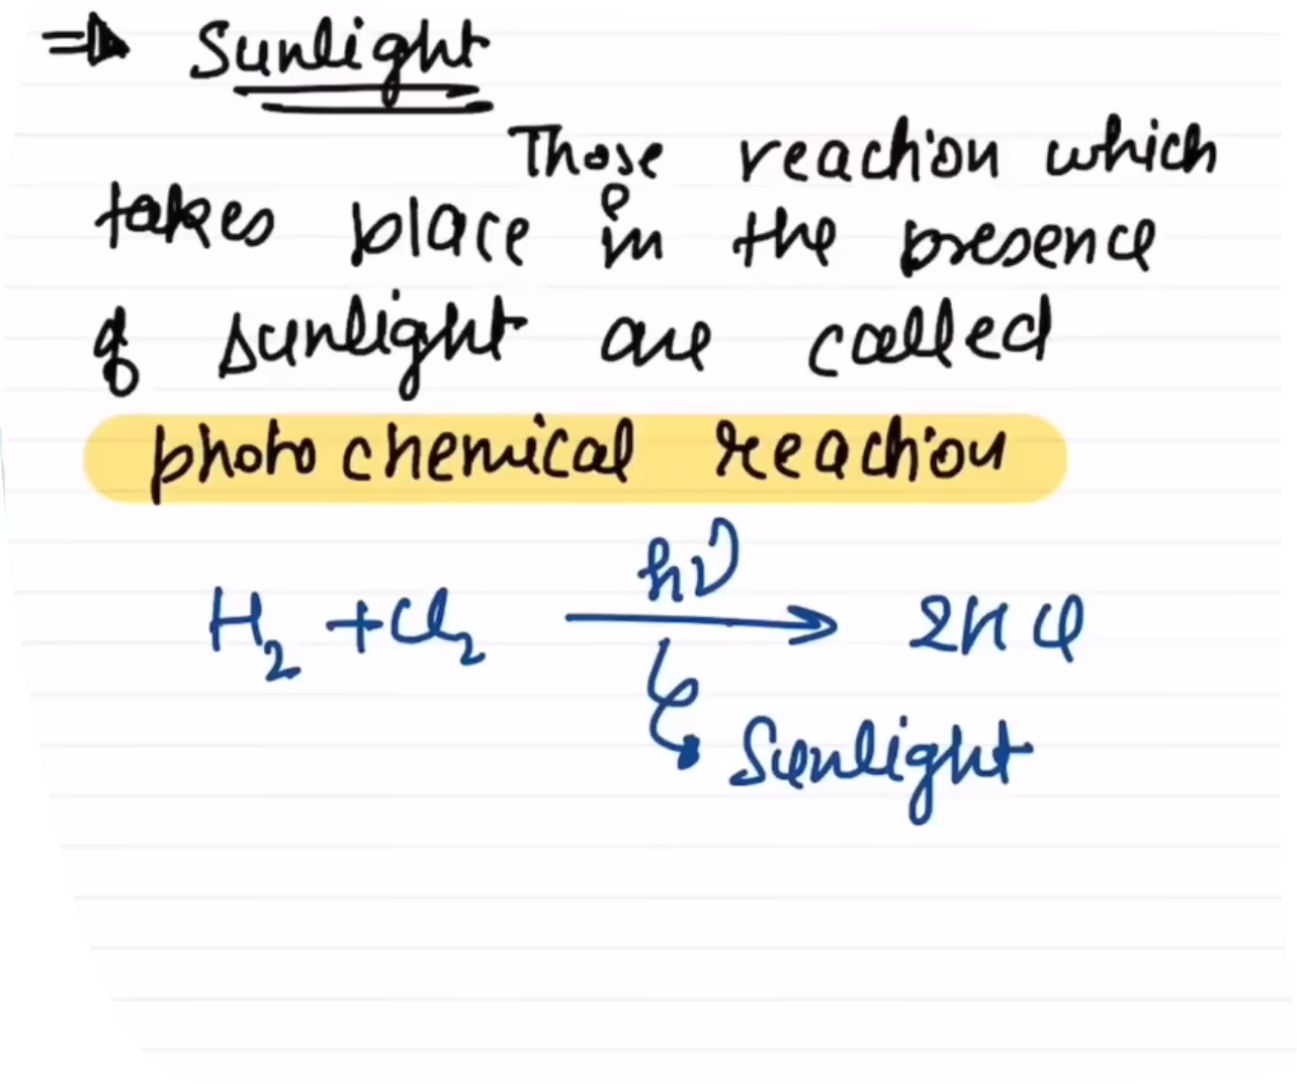 ⇒ Sunlight
Those reaction which
takes place in the presence
of sunlight are called
photochemical reaction
H₂ + Cl₂ hν → 2HCl
Sunlight